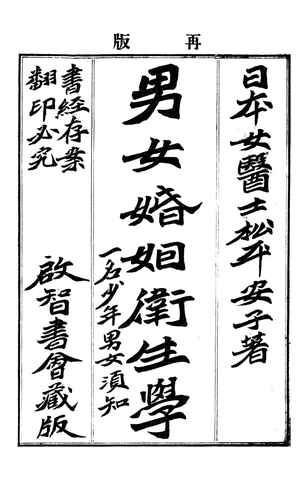 再版
日本女醫士松平安子著
男女婚姻衛生學
一名少年男女須知
書經存案
翻印必究
啟智書會藏版